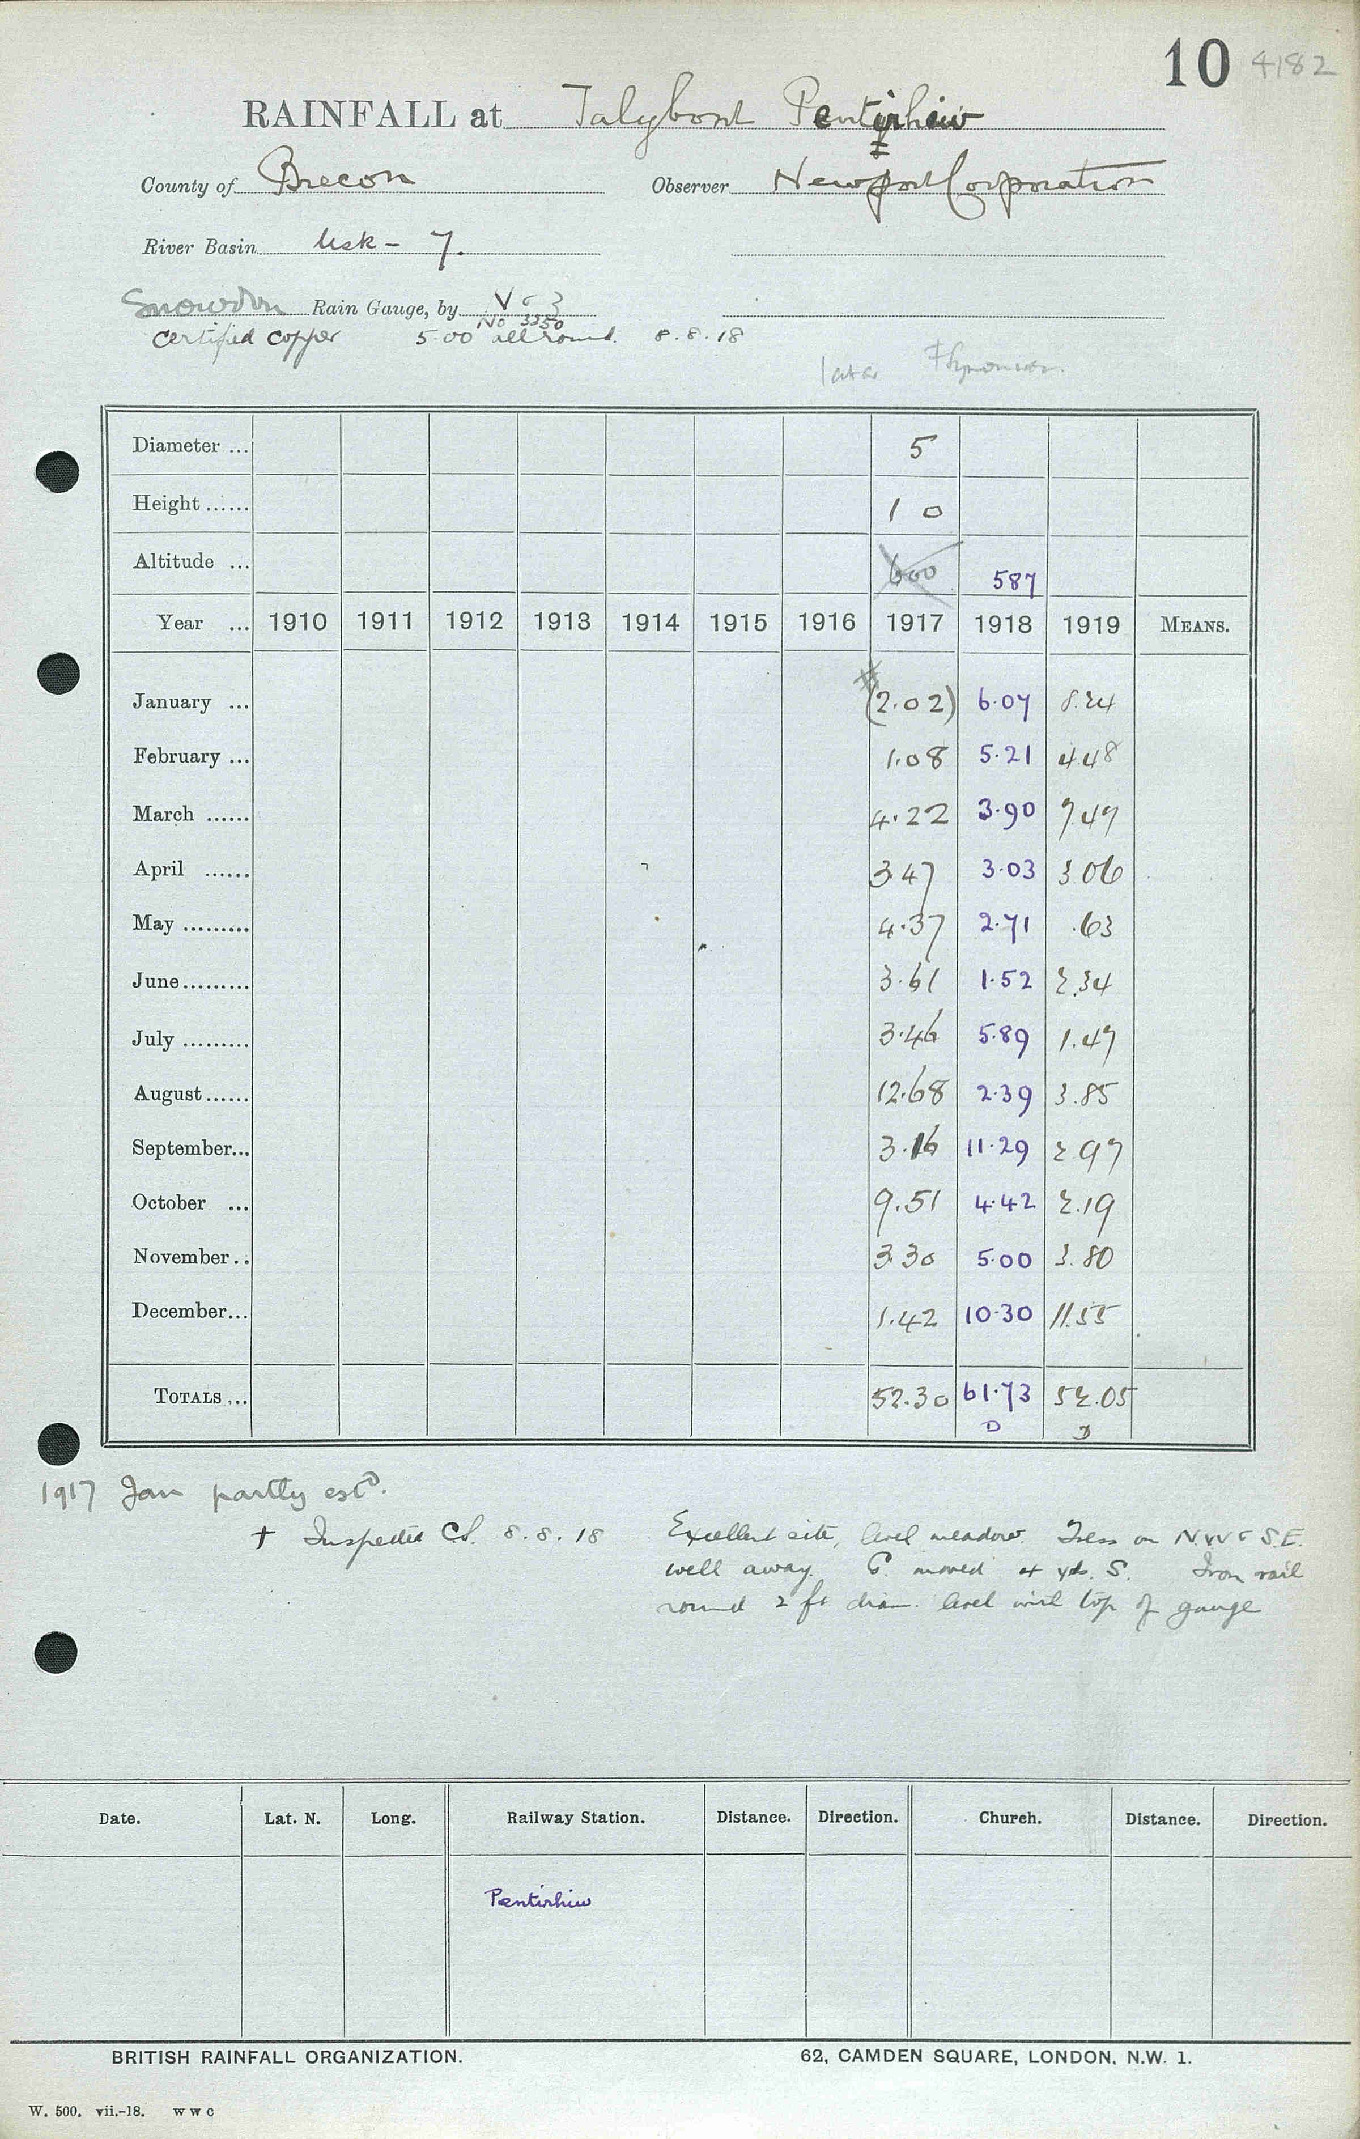 10 4182
RAINFALL at Talybont Pentirhiw
County of Brecon Observer Newport Corporation
River Basin Usk - 7.
Snowdon Rain Gauge, by
No 3350
Certified copper 5.00 all round. 8.8.18
later
Diameter ... 5
Height ...... 1 0
Altitude ... 600 587
Year ... 1910 1911 1912 1913 1914 1915 1916 1917 1918 1919 MEANS.
January ... (2.02) 6.07 8.24
February ... 1.08 5.21 4.48
March ...... 4.22 3.90 7.47
April ...... 3.47 3.03 3.06
May ......... 4.37 2.71 .63
June ......... 3.61 1.52 2.34
July ......... 3.46 5.89 1.47
August ...... 12.68 2.39 3.85
September... 3.16 11.29 2.97
October ... 9.51 4.42 2.19
November .. 3.30 5.00 3.80
December... 1.42 10.30 11.55
TOTALS ... 52.30 61.73 52.05
D D
1917 Jan partly estd.
† Inspected 8.8.18 Excellent site, level meadow. Trees on N.W & S.E.
well away. G. moved 4 yds. S. Iron rail
round 2 ft diam. level with top of gauge
Date. Lat. N. Long. Railway Station. Distance. Direction. Church. Distance. Direction.
Pentirhiw
BRITISH RAINFALL ORGANIZATION. 62, CAMDEN SQUARE, LONDON. N.W. 1.
W. 500. vii.-18. W W C